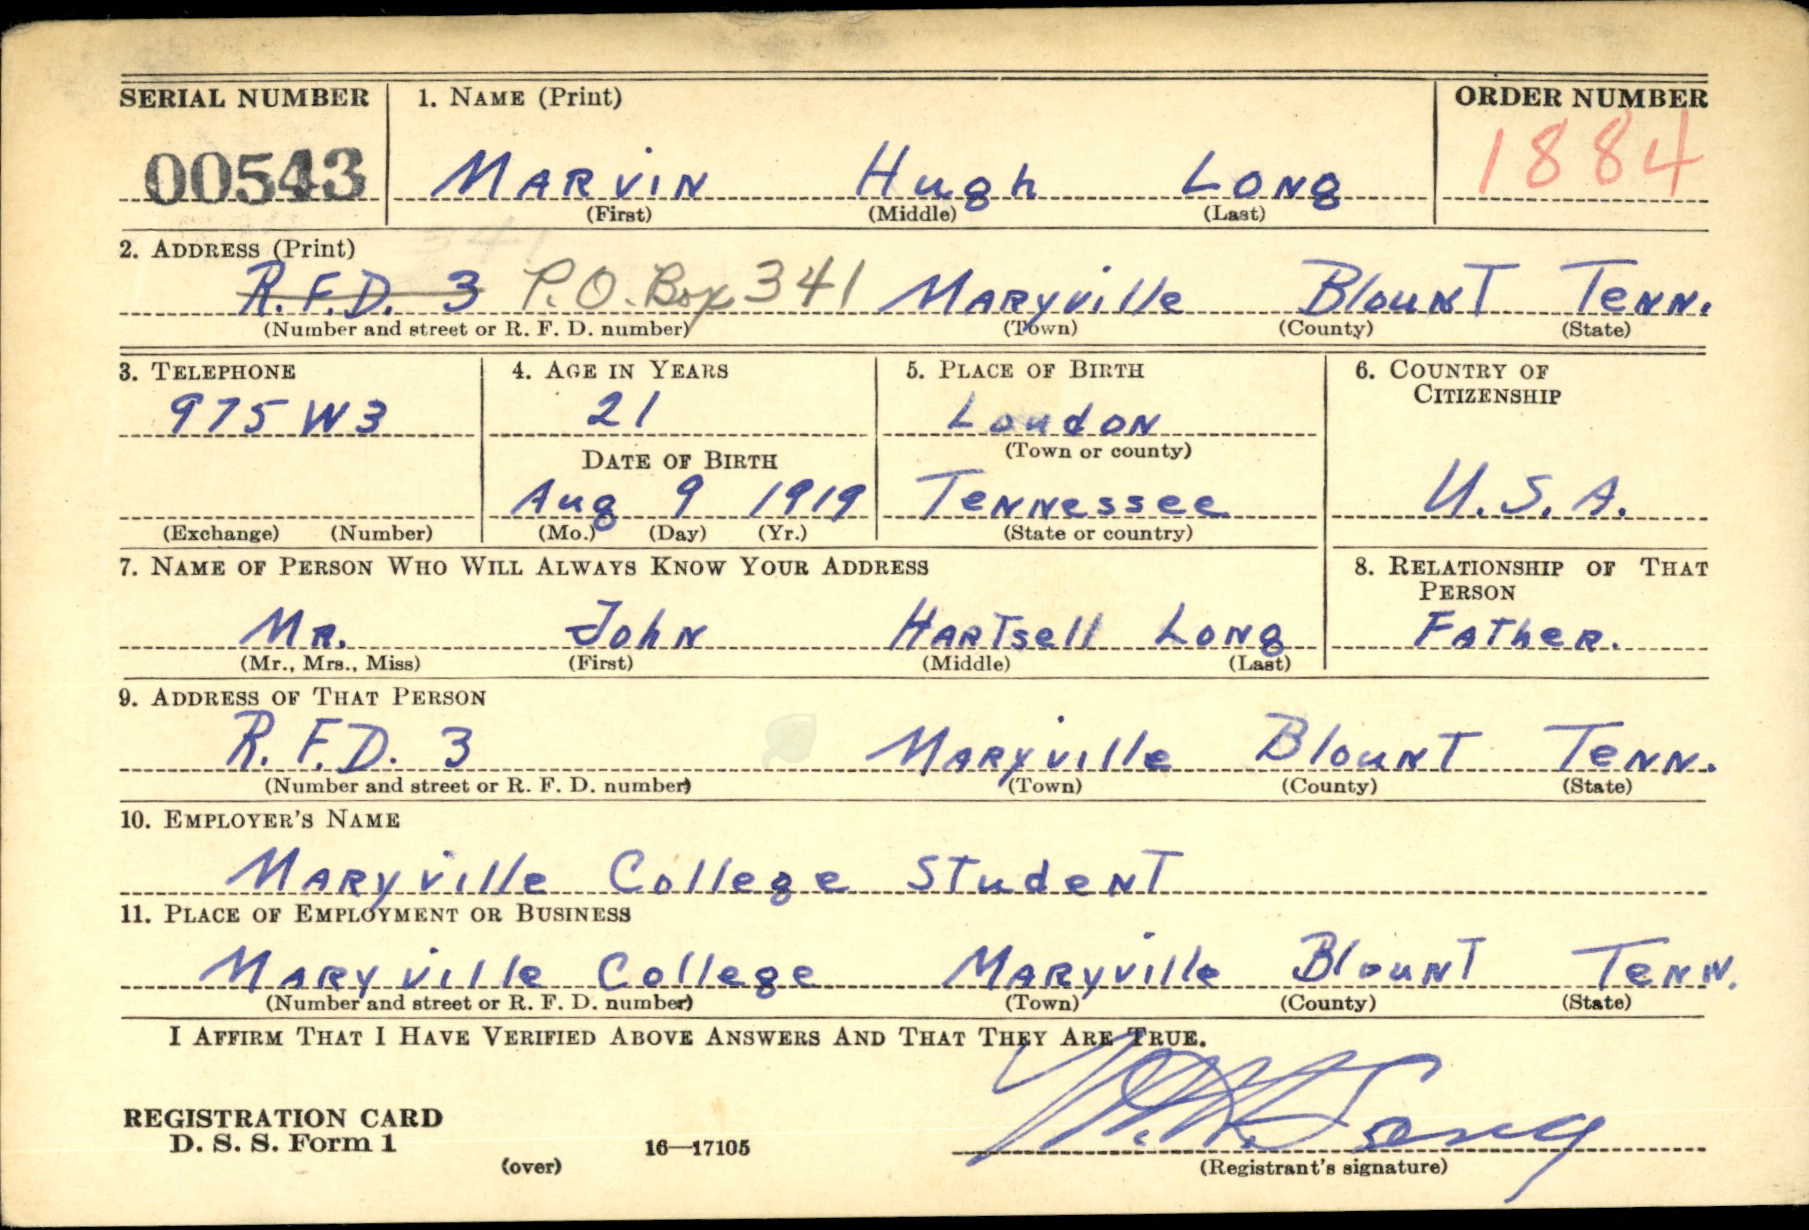 SERIAL NUMBER 1. NAME (Print) ORDER NUMBER
00543 MARVIN Hugh LONG 1884
(First) (Middle) (Last)
2. ADDRESS (Print)
R.F.D. 3 P.O. Box 341 MARYville BlounT TeNN.
(Number and street or R. F. D. number) (Town) (County) (State)
3. TELEPHONE 4. AGE IN YEARS 5. PLACE OF BIRTH 6. COUNTRY OF
CITIZENSHIP
975 W3 21 LoudoN
(Town or county)
DATE OF BIRTH
Aug 9 1919 TeNNessee U.S.A.
(Exchange) (Number) (Mo.) (Day) (Yr.) (State or country)
7. NAME OF PERSON WHO WILL ALWAYS KNOW YOUR ADDRESS 8. RELATIONSHIP OF THAT
PERSON
MR. JohN HARTsell LoNg FATheR.
(Mr., Mrs., Miss) (First) (Middle) (Last)
9. ADDRESS OF THAT PERSON
R.F.D. 3 MARYville BlouNT TeNN.
(Number and street or R. F. D. number) (Town) (County) (State)
10. EMPLOYER'S NAME
MARYville College STudeNT
11. PLACE OF EMPLOYMENT OR BUSINESS
MARYville College MARYville BlouNT TeNN.
(Number and street or R. F. D. number) (Town) (County) (State)
I AFFIRM THAT I HAVE VERIFIED ABOVE ANSWERS AND THAT THEY ARE TRUE.
M. H. Long
REGISTRATION CARD
D. S. S. Form 1 16—17105
(over) (Registrant's signature)